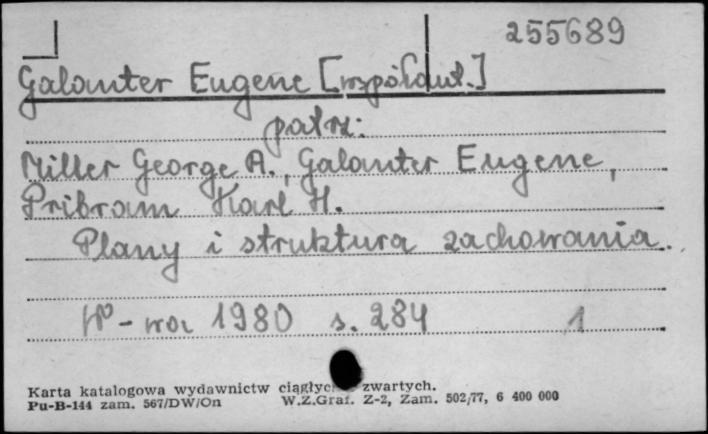 255689
Galanter Eugene [współaut.]
patrz:
Miller George A., Galanter Eugene,
Pribram Karl H.
Plany i struktura zachowania.
W-wa 1980 s. 284 1
Karta katalogowa wydawnictw zwartych.
Pu-B-144 zam. 567/DW/On W.Z.Graf. Z-2, Zam. 502/77, 6 400 000